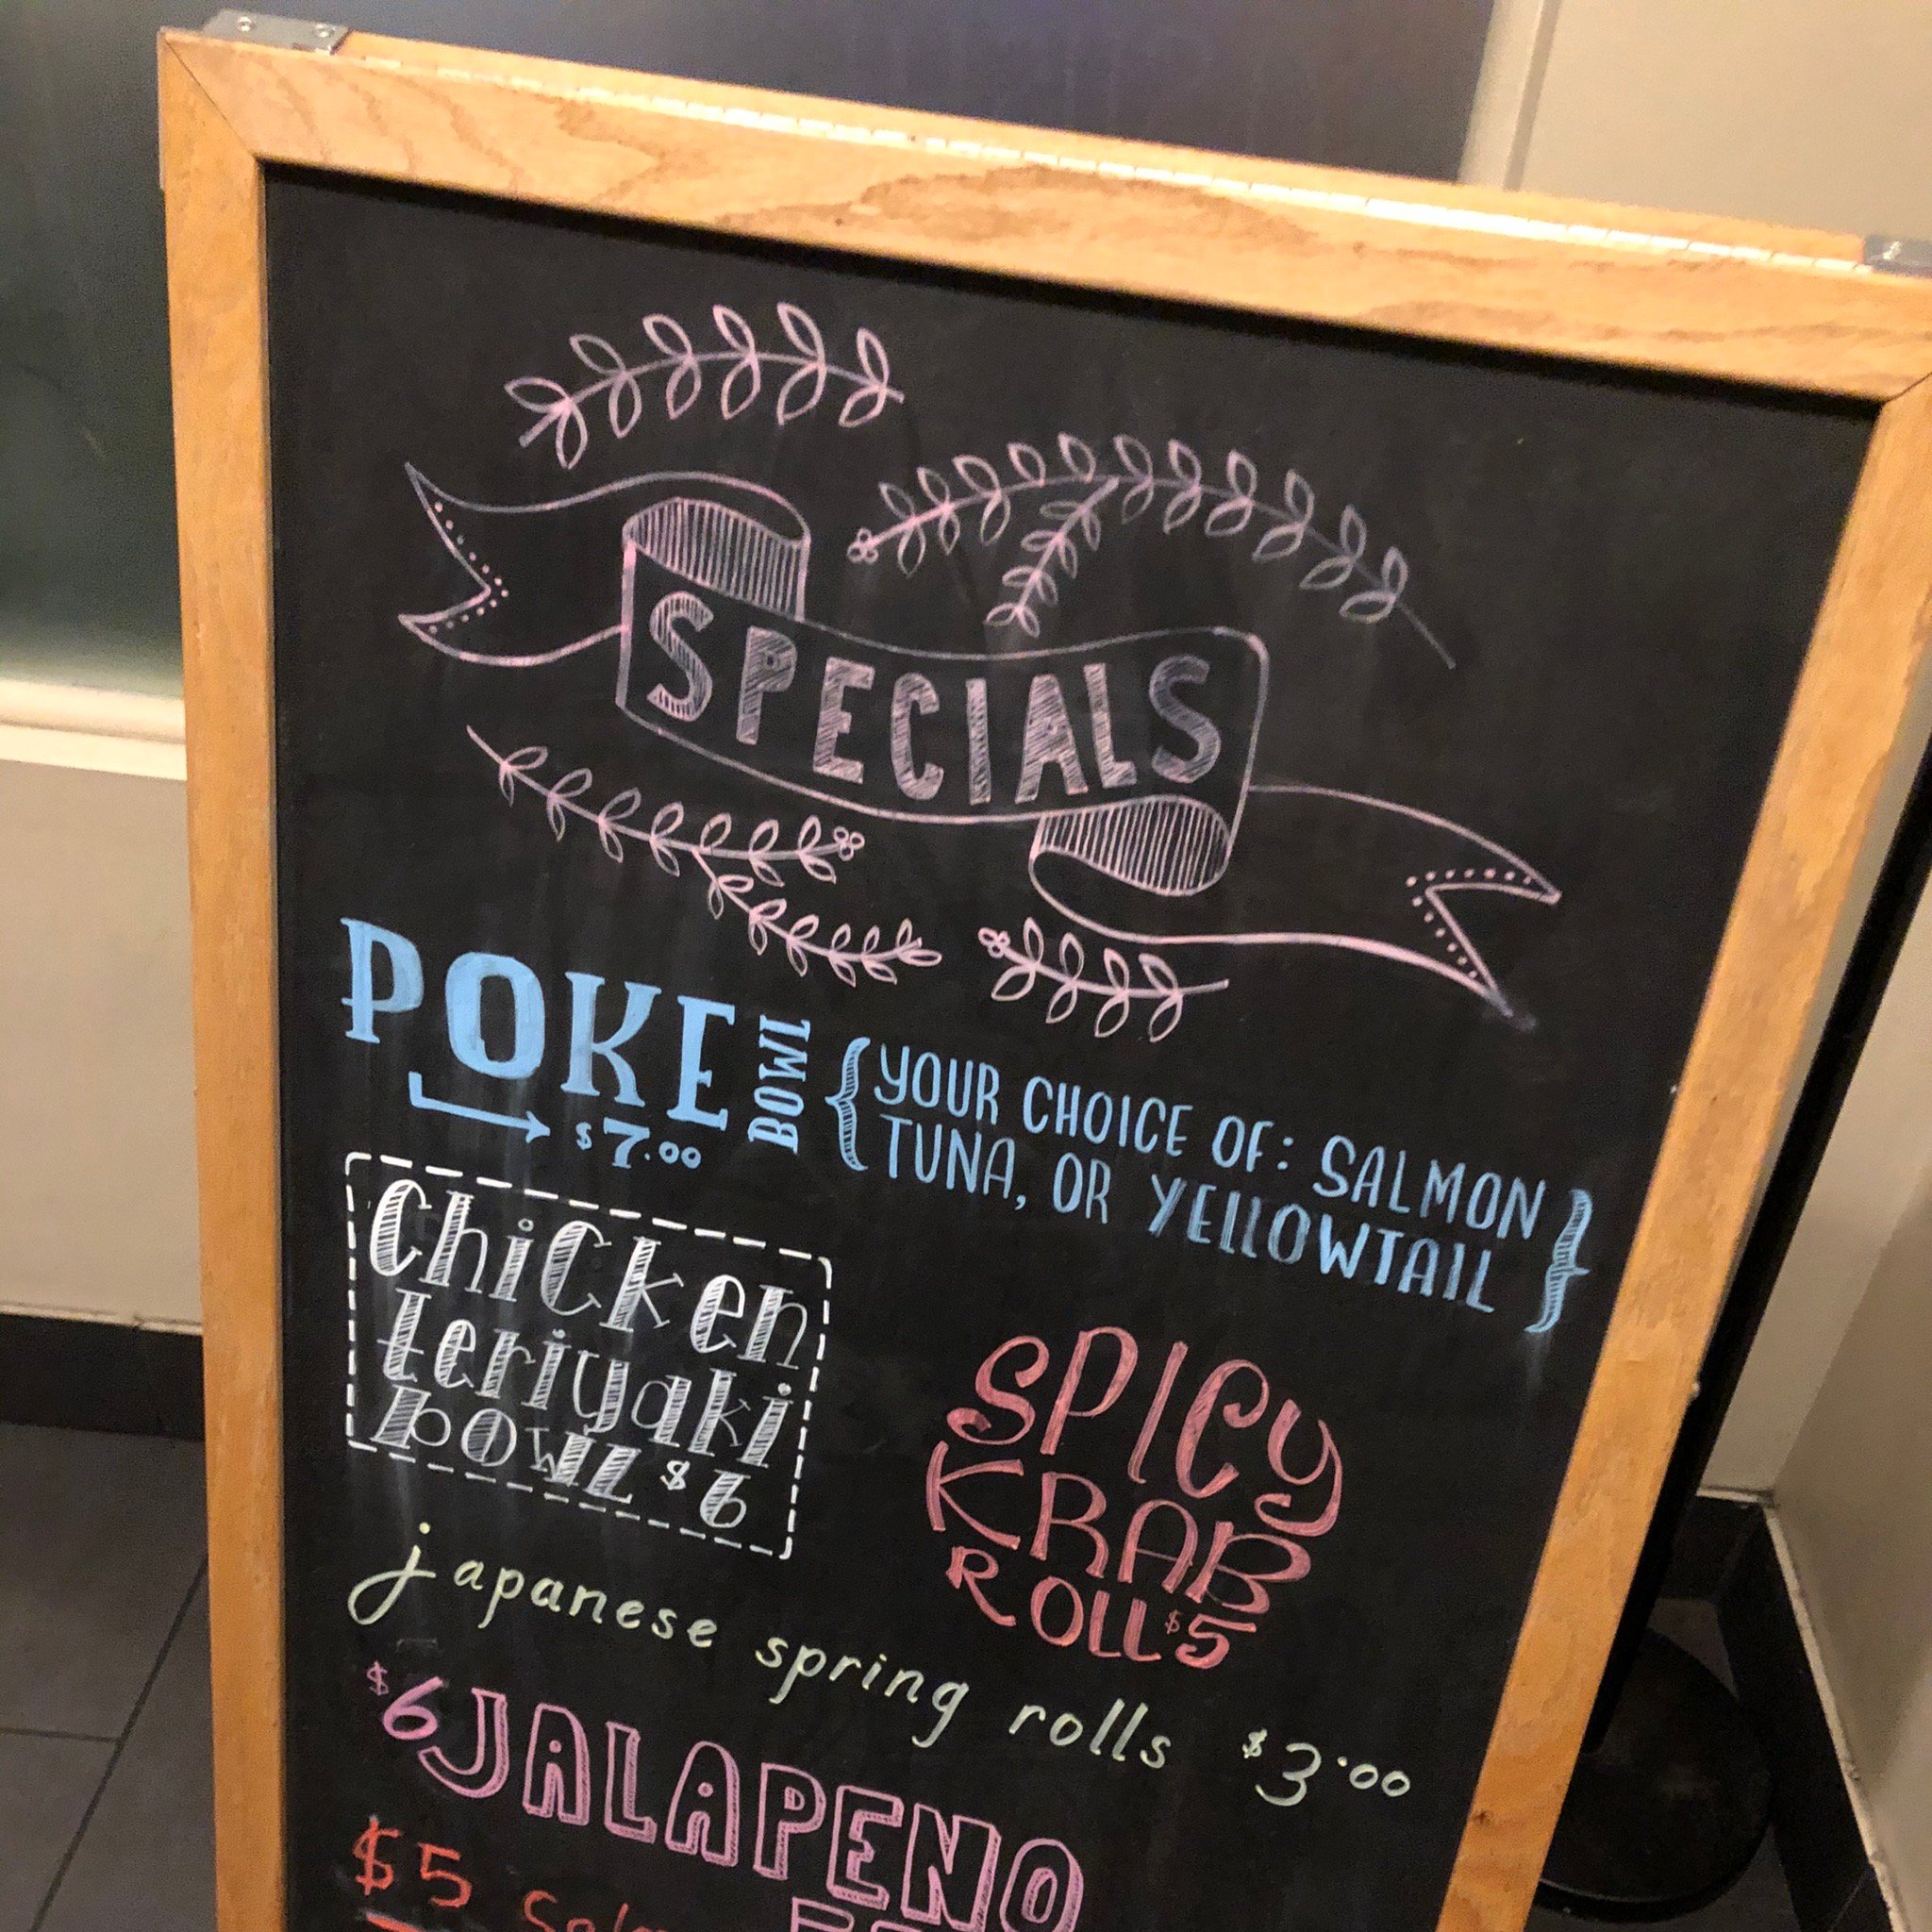 SPECIALS
POKE BOWL
$7.00
{YOUR CHOICE OF: SALMON
TUNA, OR YELLOWTAIL}
Chicken
teriyaki
bowl $6
SPICY
KRAB
ROLL $5
japanese spring rolls $3.00
$6 JALAPENO
$5